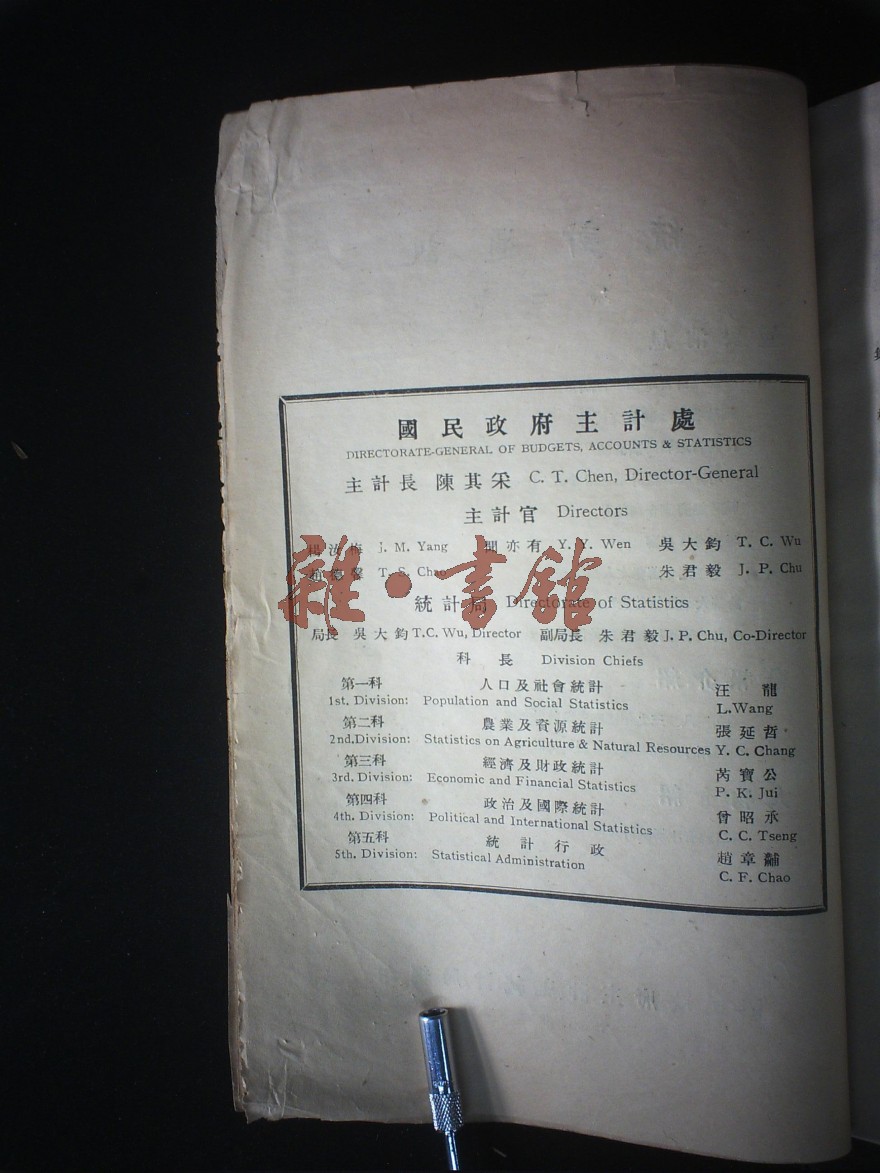 國民政府主計處
DIRECTORATE-GENERAL OF BUDGETS, ACCOUNTS & STATISTICS
主計長 陳其采 C. T. Chen, Director-General
主計官 Directors
楊汝梅 J. M. Yang 聞亦有 Y. Y. Wen 吳大鈞 T. C. Wu
T. S. Chao 朱君毅 J. P. Chu
雜·書館
統計局 Directorate of Statistics
局長 吳大鈞 T.C. Wu, Director 副局長 朱君毅 J. P. Chu, Co-Director
科長 Division Chiefs
第一科 人口及社會統計 汪龍
1st. Division: Population and Social Statistics L.Wang
第二科 農業及資源統計 張延哲
2nd.Division: Statistics on Agriculture & Natural Resources Y. C. Chang
第三科 經濟及財政統計 芮寶公
3rd. Division: Economic and Financial Statistics P. K. Jui
第四科 政治及國際統計 曾昭承
4th. Division: Political and International Statistics C. C. Tseng
第五科 統計行政 趙章黼
5th. Division: Statistical Administration C. F. Chao